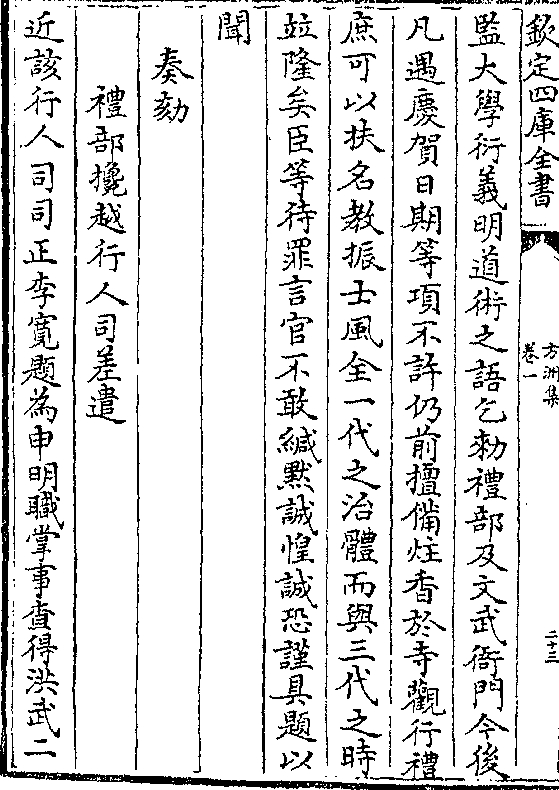 欽定四庫全書
方洲集
卷一
二十三
監大學衍義明道術之語乞勑禮部及文武衙門今後
凡遇慶賀日期等項不許仍前擅備炷香於寺觀行禮
庶可以扶名教振士風全一代之治體而與三代之時
竝隆矣臣等待罪言官不敢緘默誠惶誠恐謹具題以
聞
奏劾
禮部攙越行人司差遣
近該行人司司正李寛題為申明職掌事查得洪武二